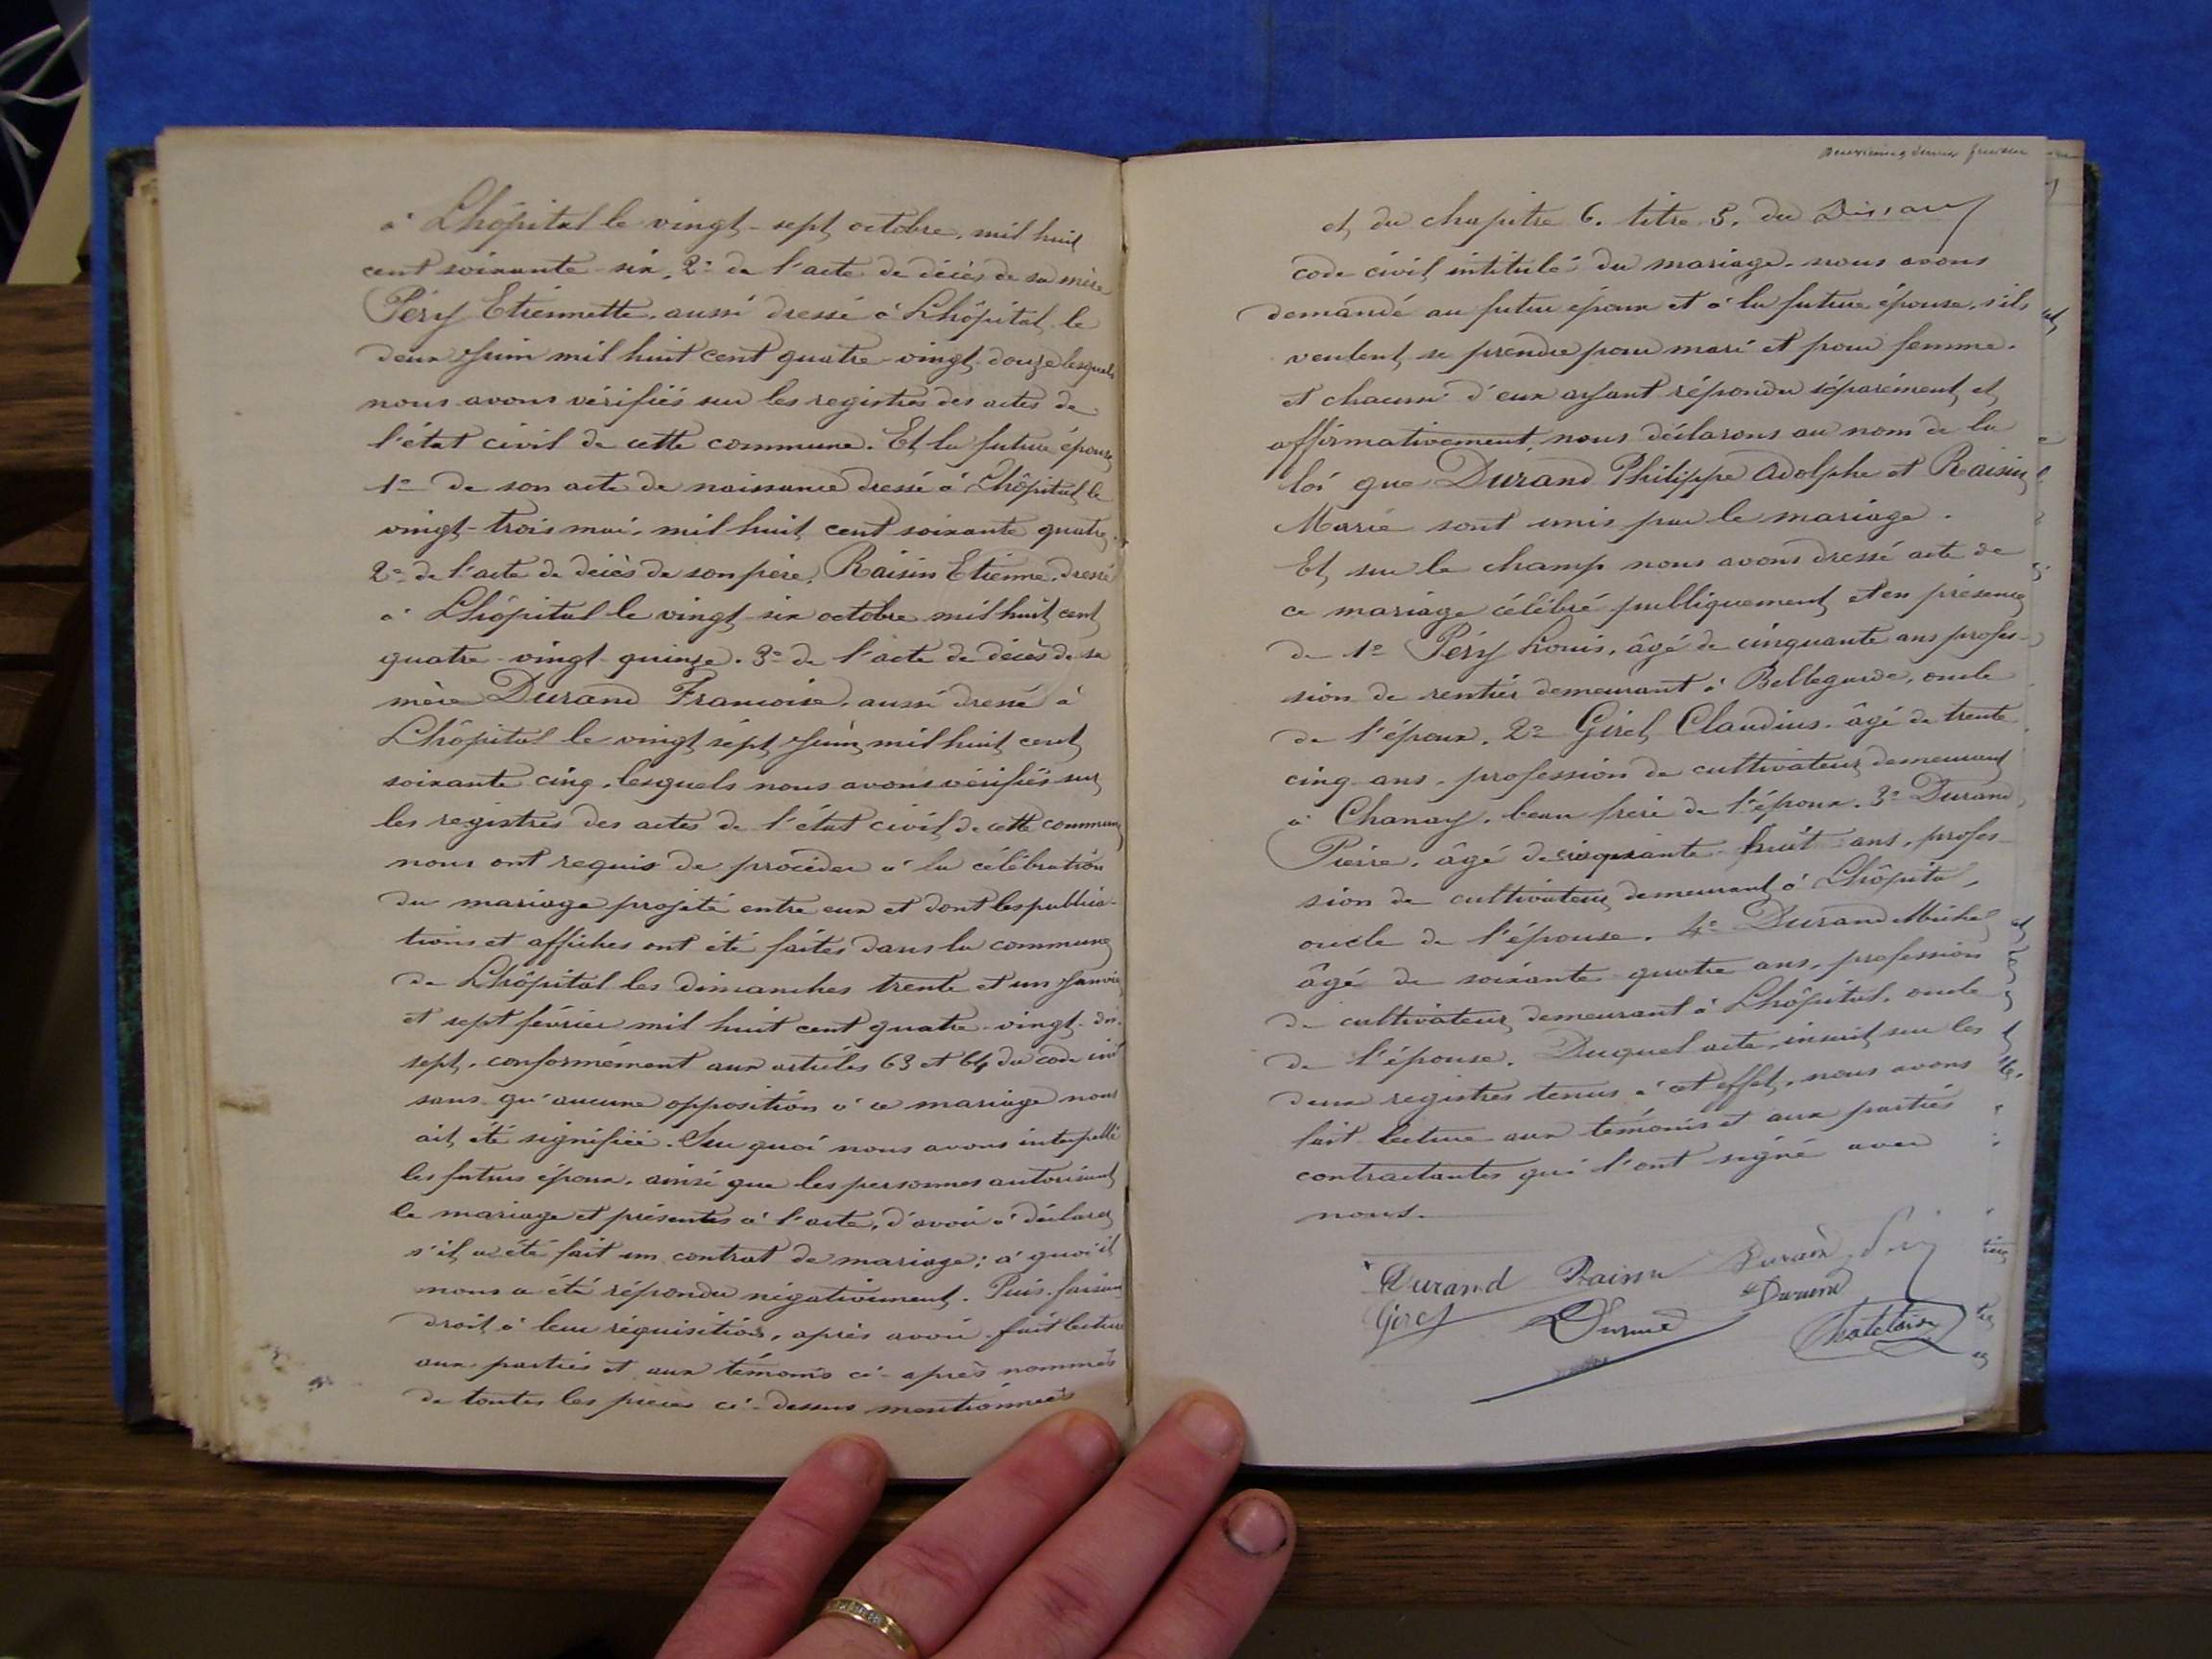 à Lhôpital le vingt-sept octobre, mil huit
cent soixante-six, 2º de l'acte de décès de sa mère
Péry Etiennette, aussi dressé à Lhôpital le
deux Juin mil huit cent quatre-vingt-douze lesquels
nous avons vérifiés sur les registres des actes de
l'état civil de cette commune. Et la future épouse
1º de son acte de naissance dressé à Lhôpital le
vingt-trois mai, mil huit cent soixante quatre,
2º de l'acte de décès de son père, Raisin Etienne, dressé
à Lhôpital le vingt-six octobre mil huit cent
quatre-vingt-quinze. 3º de l'acte de décès de sa
mère Durand Francoise, aussi dressé à
Lhôpital le vingt sept Juin mil huit cent
soixante cinq, lesquels nous avons vérifiés sur
les registres des actes de l'état civil de cette commune
nous ont requis de procéder à la célébration
du mariage projeté entre eux et dont les publica-
tions et affiches ont été faites dans la commune
de Lhôpital les dimanches trente et un Janvier
et sept février mil huit cent quatre-vingt-dix-
sept, conformément aux articles 63 et 64 du code civil
sans qu'aucune opposition à ce mariage nous
ait été signifiée. Sur quoi nous avons interpellé
les futurs époux, ainsi que les personnes autorisant
le mariage et présentes à l'acte, d'avoir à déclarer
s'il a été fait un contrat de mariage; à quoi il
nous a été répondu négativement. Puis, faisant
droit à leur réquisition, après avoir fait lecture
aux parties et aux témoins ci-après nommés
de toutes les pièces ci-dessus mentionnées
et du chapitre 6. titre 5. du
code civil intitulé du mariage, nous avons
demandé au futur époux et à la future épouse, s'ils
veulent se prendre pour mari et pour femme.
et chacun d'eux ayant répondu séparément et
affirmativement, nous déclarons au nom de la
loi que Durand Philippe Adolphe et Raisin
Marie sont unis par le mariage.
Et sur le champ nous avons dressé acte de
ce mariage célébré publiquement et en présence
de 1º Péry Louis, âgé de cinquante ans profes-
sion de rentier demeurant à Bellegarde, oncle
de l'époux, 2º Giret Claudius, âgé de trente
cinq ans, profession de cultivateur demeurant
à Chanay, beau frère de l'époux. 3º Durand
Pierre, âgé de cinquante-huit ans, profes-
sion de cultivateur demeurant à Lhôpital,
oncle de l'épouse. 4º Durand Michel
âgé de soixante-quatre ans, profession
de cultivateur demeurant à Lhôpital, oncle
de l'épouse. Duquel acte, inscrit sur les
deux registres tenus à cet effet, nous avons
fait lecture aux témoins et aux parties
contractantes qui l'ont signé avec
nous.
Durand Raisin Durand Péry
Giret Durand Durand